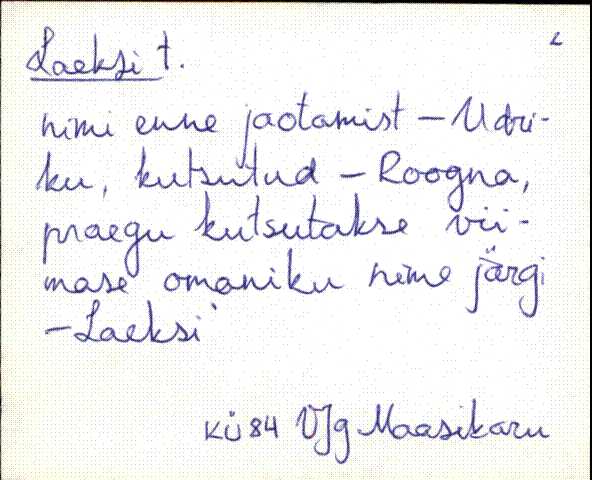 Laeksi t.
nimi enne jaotamist – Udri-
ku, kutsutud – Roogna,
praegu kutsutakse vii-
mase omaniku nime järgi
– Laeksi
KÜ 84 VJg Maasikaru